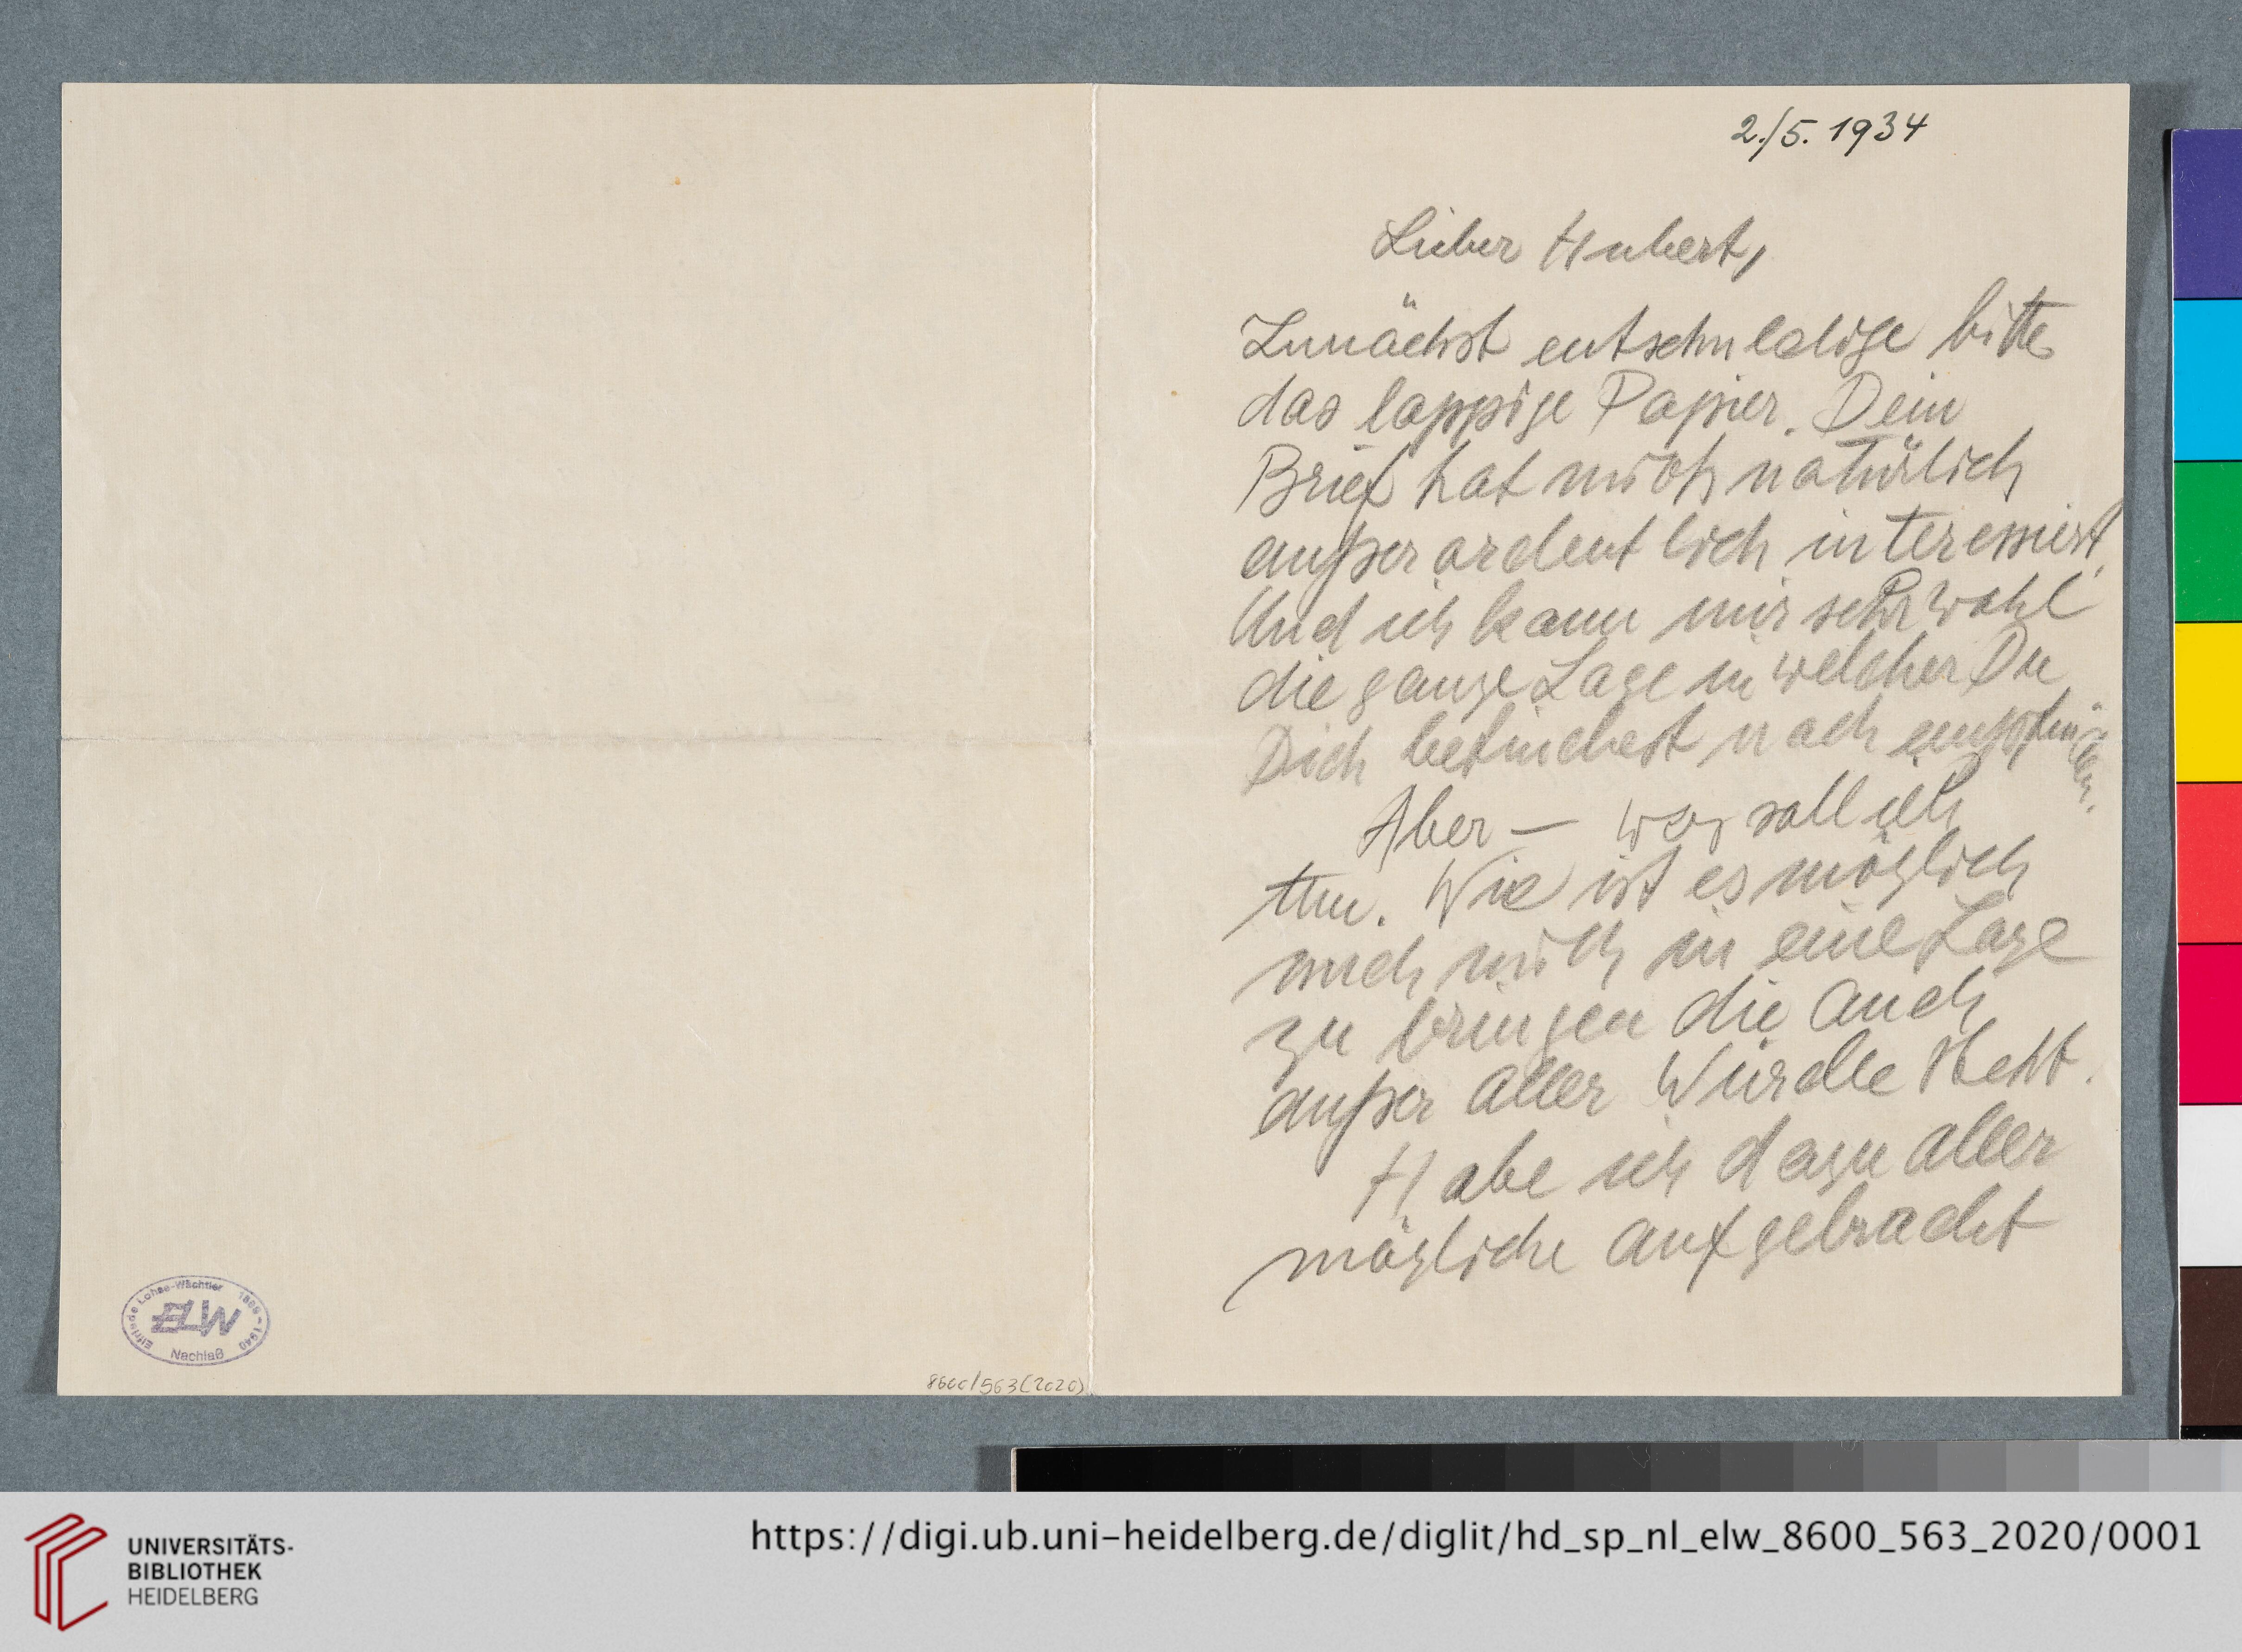 2./5. 1934
Lieber Hubert,
Zunächst entschuldige bitte
das lappige Papier. Dein
Brief hat mich natürlich
außerordentlich interessiert.
Und ich kann mir sehr wohl
die ganze Lage in welcher Du
Dich befindest nach empfin-
den.
Aber — was soll ich
tun. Wie ist es möglich
auch mich in eine Lage
zu bringen die auch
außer aller Würde steht.
Habe ich dazu aller
mögliche aufgebracht
Elfriede Lohse-Wächtler 1899-1940
ELW
Nachlaß
8600/563(2020)
UNIVERSITÄTS-
BIBLIOTHEK
HEIDELBERG
https://digi.ub.uni-heidelberg.de/diglit/hd_sp_nl_elw_8600_563_2020/0001